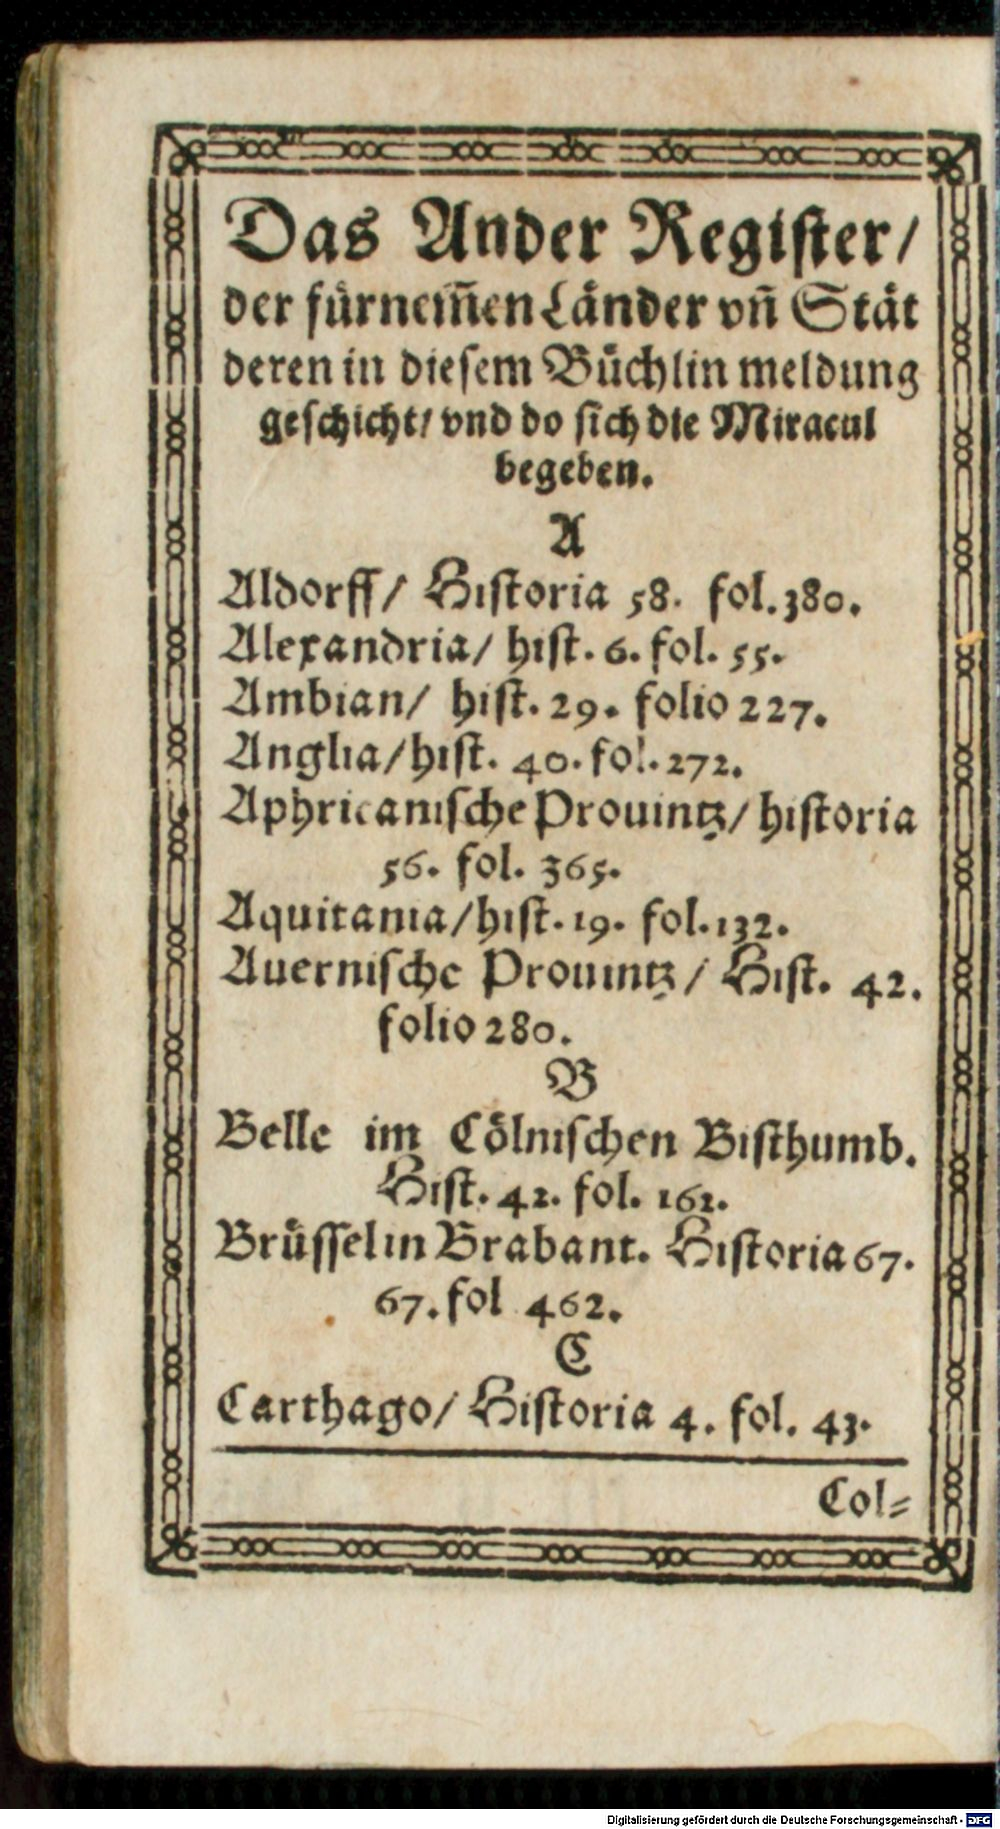 Das Ander Register/
der fürnem̃en Länder vñ Stät
deren in diesem Büchlin meldung
geschicht/ vnd do sich die Miracul
begeben.
A
Aldorff/ Historia 58. fol. 380.
Alexandria/ hist. 6. fol. 55.
Ambian/ hist. 29. folio 227.
Anglia/ hist. 40. fol. 272.
Aphricanische Prouintz/ historia
56. fol. 365.
Aquitania/ hist. 19. fol. 132.
Auernische Prouintz/ Hist. 42.
folio 280.
B
Belle im Cölnischen Bisthumb.
Hist. 42. fol. 162.
Brüssel in Brabant. Historia 67.
67. fol 462.
C
Carthago/ Historia 4. fol. 43.
Col=
Digitalisierung gefördert durch die Deutsche Forschungsgemeinschaft - DFG